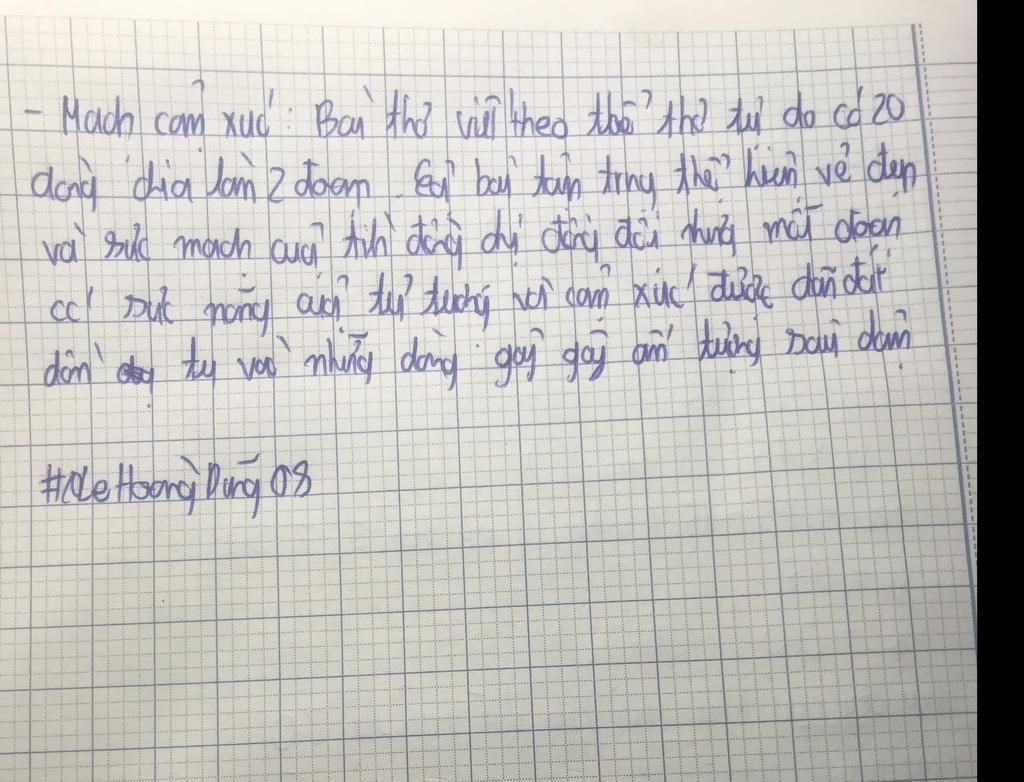 - Mạch cảm xúc: Bài thơ viết theo thể thơ tự do có 20
dòng chia làm 2 đoạn. Cả bài tập trung thể hiện vẻ đẹp
và sức mạnh của tình đồng chí đồng đội nhưng mỗi đoạn
có sức nặng của tư tưởng và cảm xúc được dẫn dắt
dồn tụ vào những dòng gây gây ấn tượng sâu đậm
#LeHoangDung08